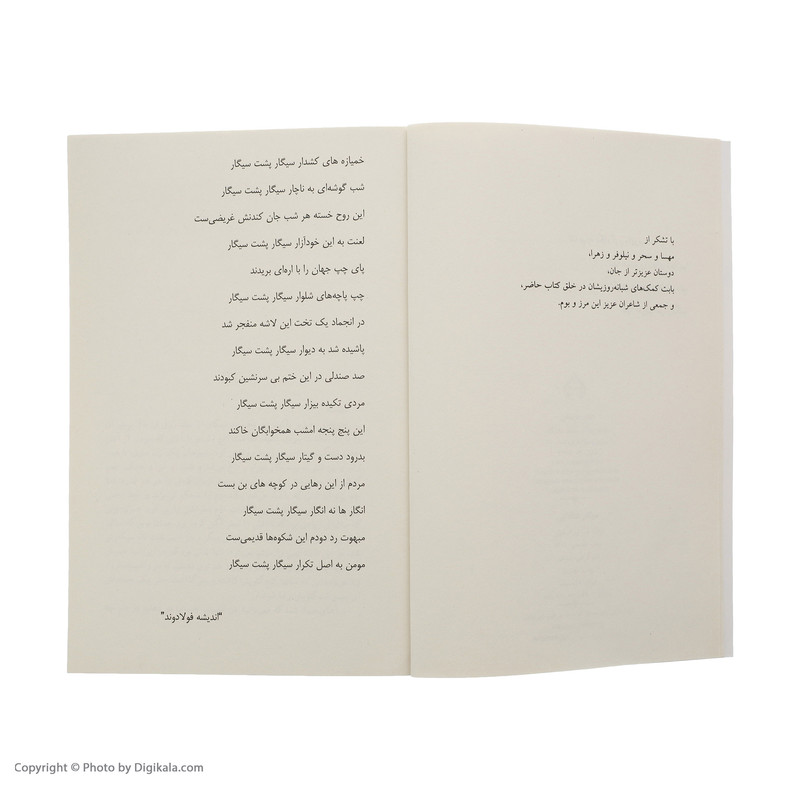 با تشکر از
مهسا و سحر و نیلوفر و زهرا،
دوستان عزیزتر از جان،
بابت کمک‌های شبانه‌روزیشان در خلق کتاب حاضر،
و جمعی از شاعران عزیز این مرز و بوم.
خمیازه های کشدار سیگار پشت سیگار
شب گوشه‌ای به ناچار سیگار پشت سیگار
این روح خسته هر شب جان کندنش غریضی‌ست
لعنت به این خودآزار سیگار پشت سیگار
پای چپ جهان را با اره‌ای بریدند
چپ پاچه‌های شلوار سیگار پشت سیگار
در انجماد یک تخت این لاشه منفجر شد
پاشیده شد به دیوار سیگار پشت سیگار
صد صندلی در این ختم بی سرنشین کبودند
مردی تکیده بیزار سیگار پشت سیگار
این پنج پنجه امشب همخوابگان خاکند
بدرود دست و گیتار سیگار پشت سیگار
مردم از این رهایی در کوچه های بن بست
انگار ها نه انگار سیگار پشت سیگار
مبهوت رد دودم این شکوه‌ها قدیمی‌ست
مومن به اصل تکرار سیگار پشت سیگار
"اندیشه فولادوند"
Copyright © Photo by Digikala.com